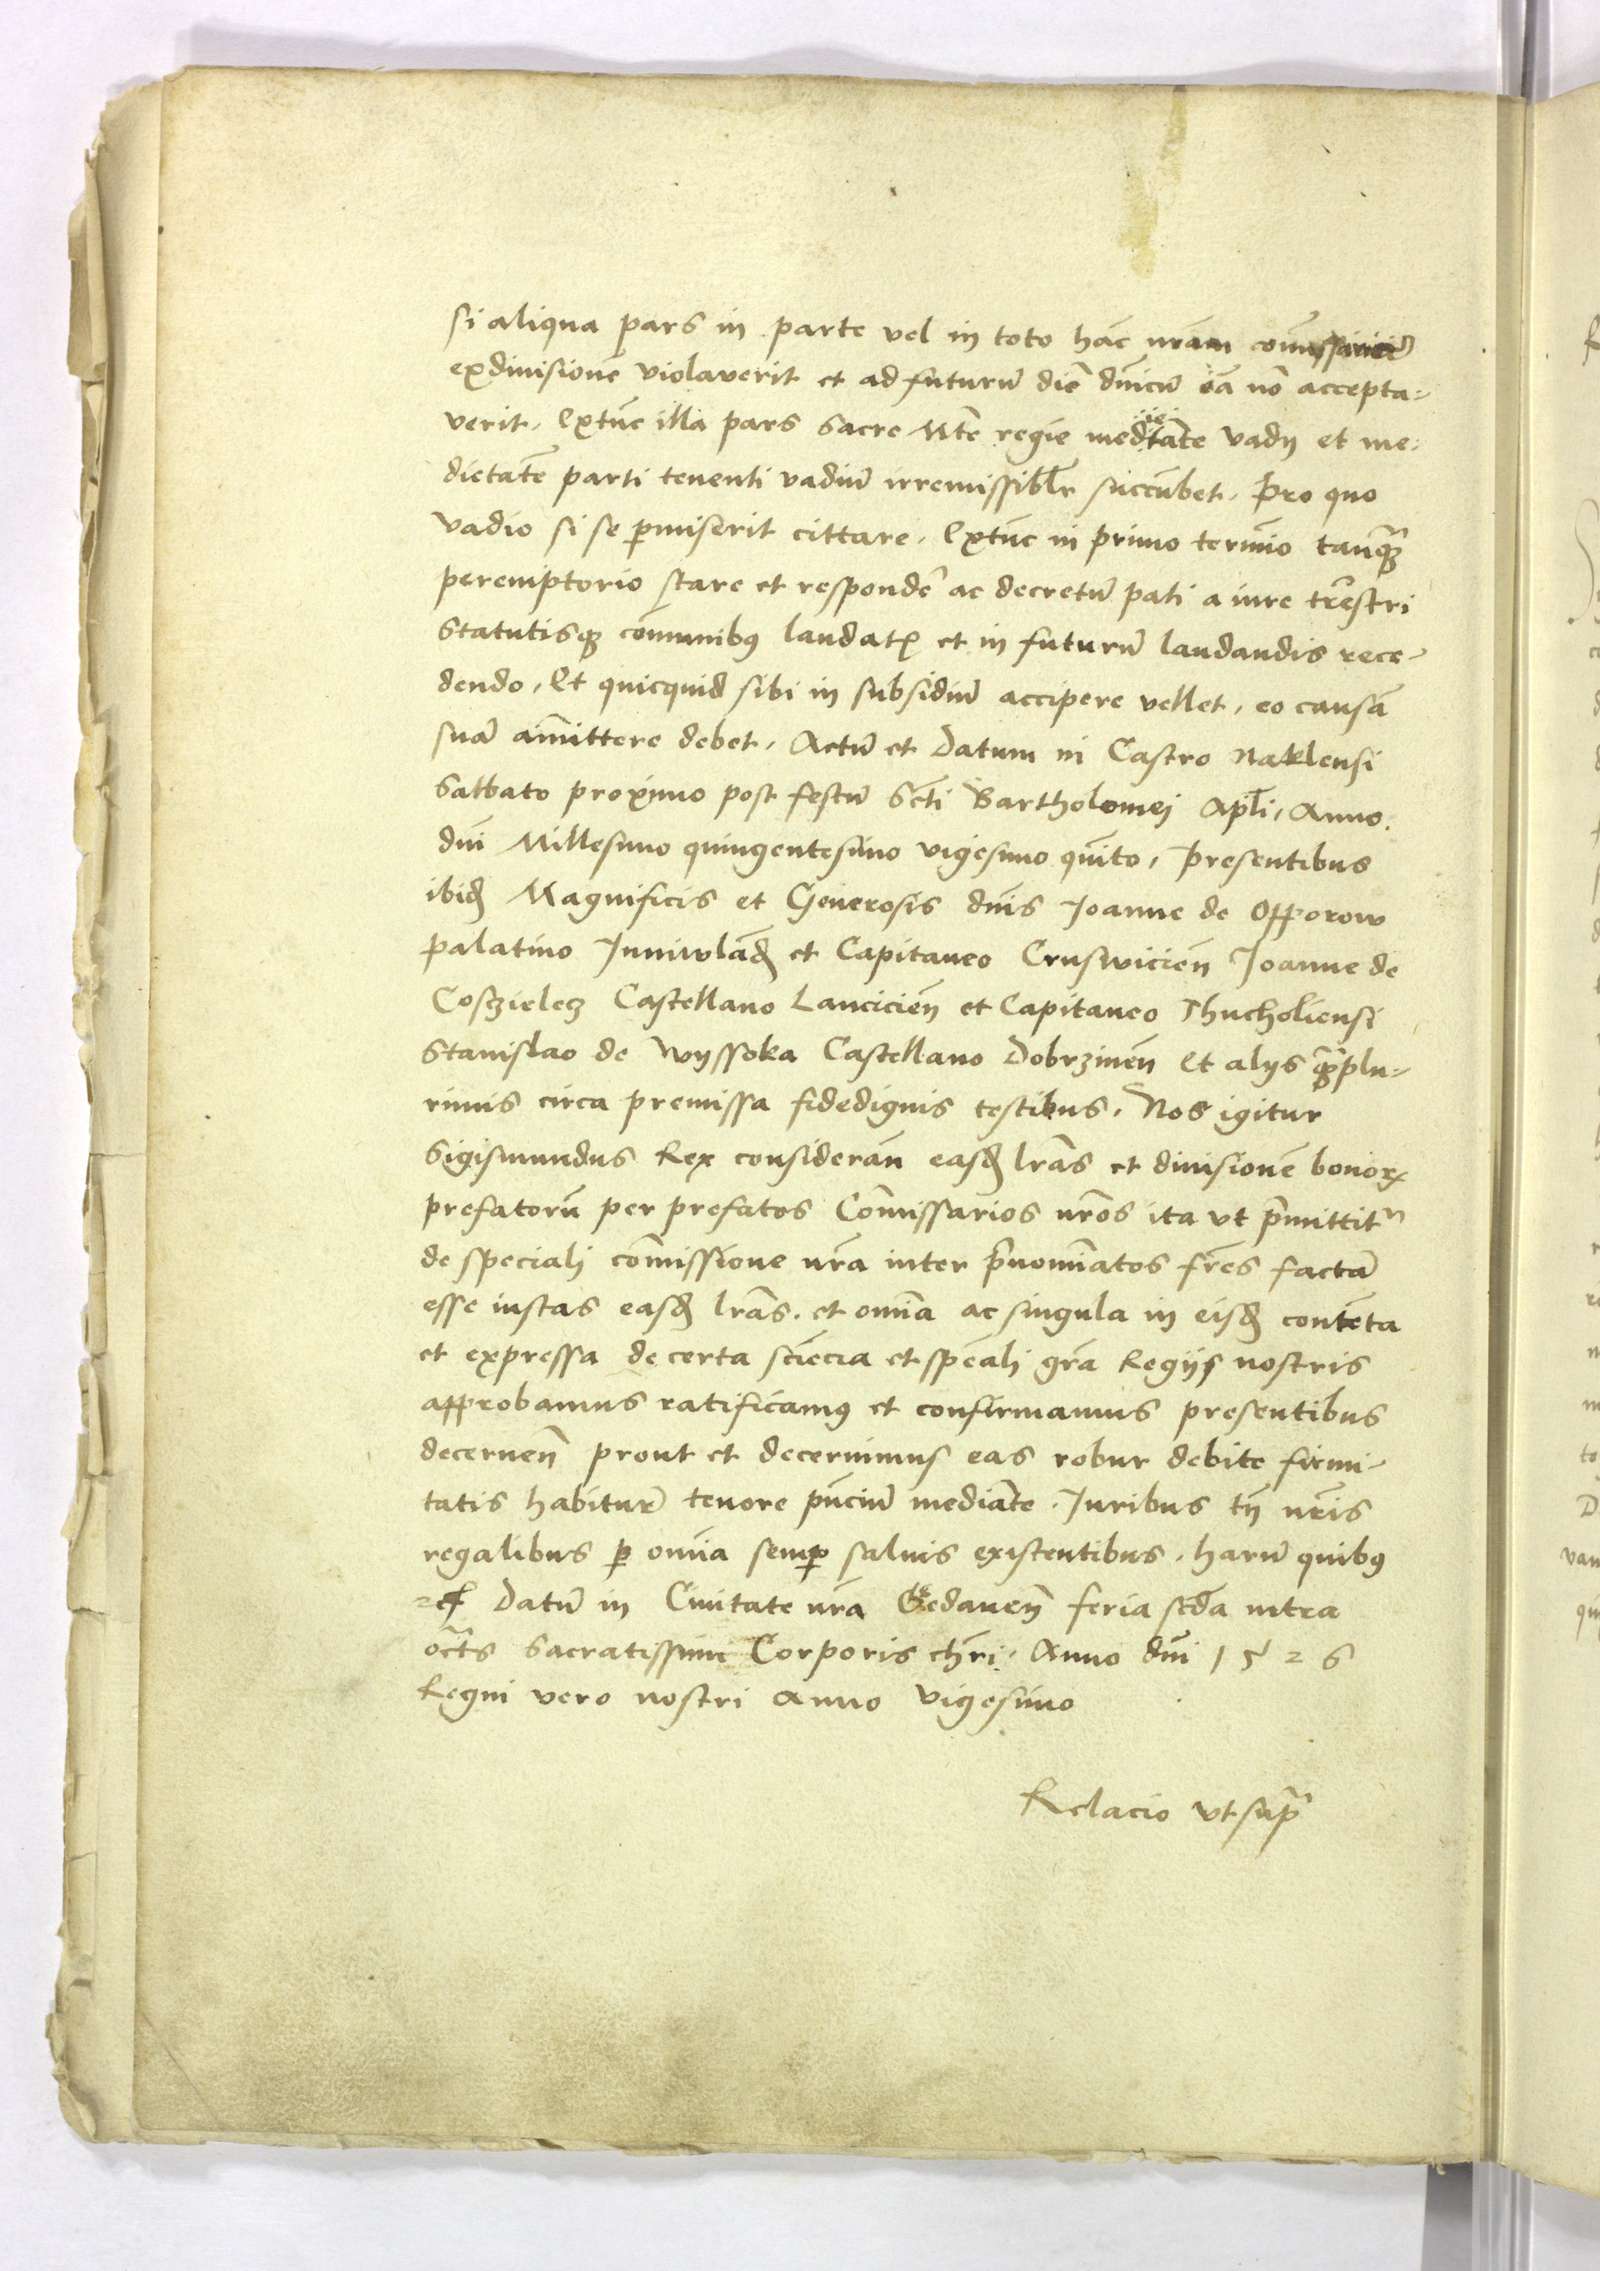 si aliqua pars in parte vel in toto hãc nrãm
exdiuisionẽ violaverit et ad futurũ diẽ dñicũ eã nõ accepta-
verit. Extũc illa pars sacre Mtẽ regie medietãte vadij et me-
dietatẽ parti tenenti vadiũ irremissiblr succũbet. Pro quo
vadio si se pmiserit cittare. Extũc in primo termĩo tanq̃
peremptorio stare et respondẽ ac decretũ pati a iure trẽstri
statutisq cõmunibꝰ laudatꝭ et in futurũ laudandis rece-
dendo. Et quicquid sibi in subsidiũ accipere vellet, eo causã
suã amĩttere debet. Actũ et Datum in Castro Naklensi
Sabbato proximo post festũ Scti Bartholomej Apli, Anno
dnĩ Millesimo quingentesimo vigesimo quĩto, Presentibus
ibid Magnificis et Generosis dnis Joanne de Opporow
palatino Juniwladꝭ et Capitaneo Cruswicieñ Joanne de
Coszielecz Castellano Lancicieñ et Capitaneo Thucholiensi
Stanislao de Wyssoka Castellano Dobrzineñ Et alijs q̃plu-
rimis circa premissa fidedignis testibus. Nos igitur
Sigismundus Rex considerañ easd lrãs et diuisionẽ bonorꝝ
prefatorũ per prefatos Comĩssarios nrõs ita vt pmĩttitr
de speciali comĩssione nrã inter pnomĩatos frẽs factã
esse iustas easd lrãs. et omĩa ac singula in eisd contẽta
et expressa de certa sciẽcia et speãli grã Regijs nostris
approbamus ratificamꝰ et confirmamus presentibus
decerneñ prout et decernimus eas robur debite firmi-
tatis habiturẽ tenore pñciũ mediãte. Juribus tñ nrĩs
regalibus ꝑ omĩa semp saluis existentibus. harũ quibꝰ
Datũ in Ciuitate nrã Gedaneñ feria scdã intra
octs sacratissimi Corporis chrĩ. Anno dnĩ 1526
Regni vero nostri anno vigesimo
Relacio vt supã